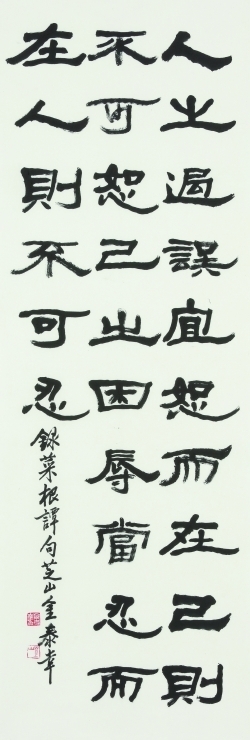 人之過誤宜恕而在己則
不可恕己之困辱當忍而
在人則不可忍
錄菜根譚句芝山金泰幸